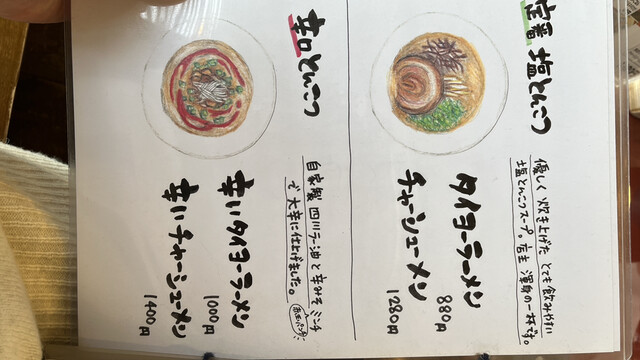 定番 塩とんこつ
優しく炊き上げた とても飲みやすい
塩とんこつスープ。店主 渾身の一杯です。
タイヨーラーメン
880円
チャーシューメン
1280円
辛口とんこつ
自家製 四川ラー油と辛みそミンチ
で 大辛に仕上げました。
辛いタイヨーラーメン
1000円
辛いチャーシューメン
1400円